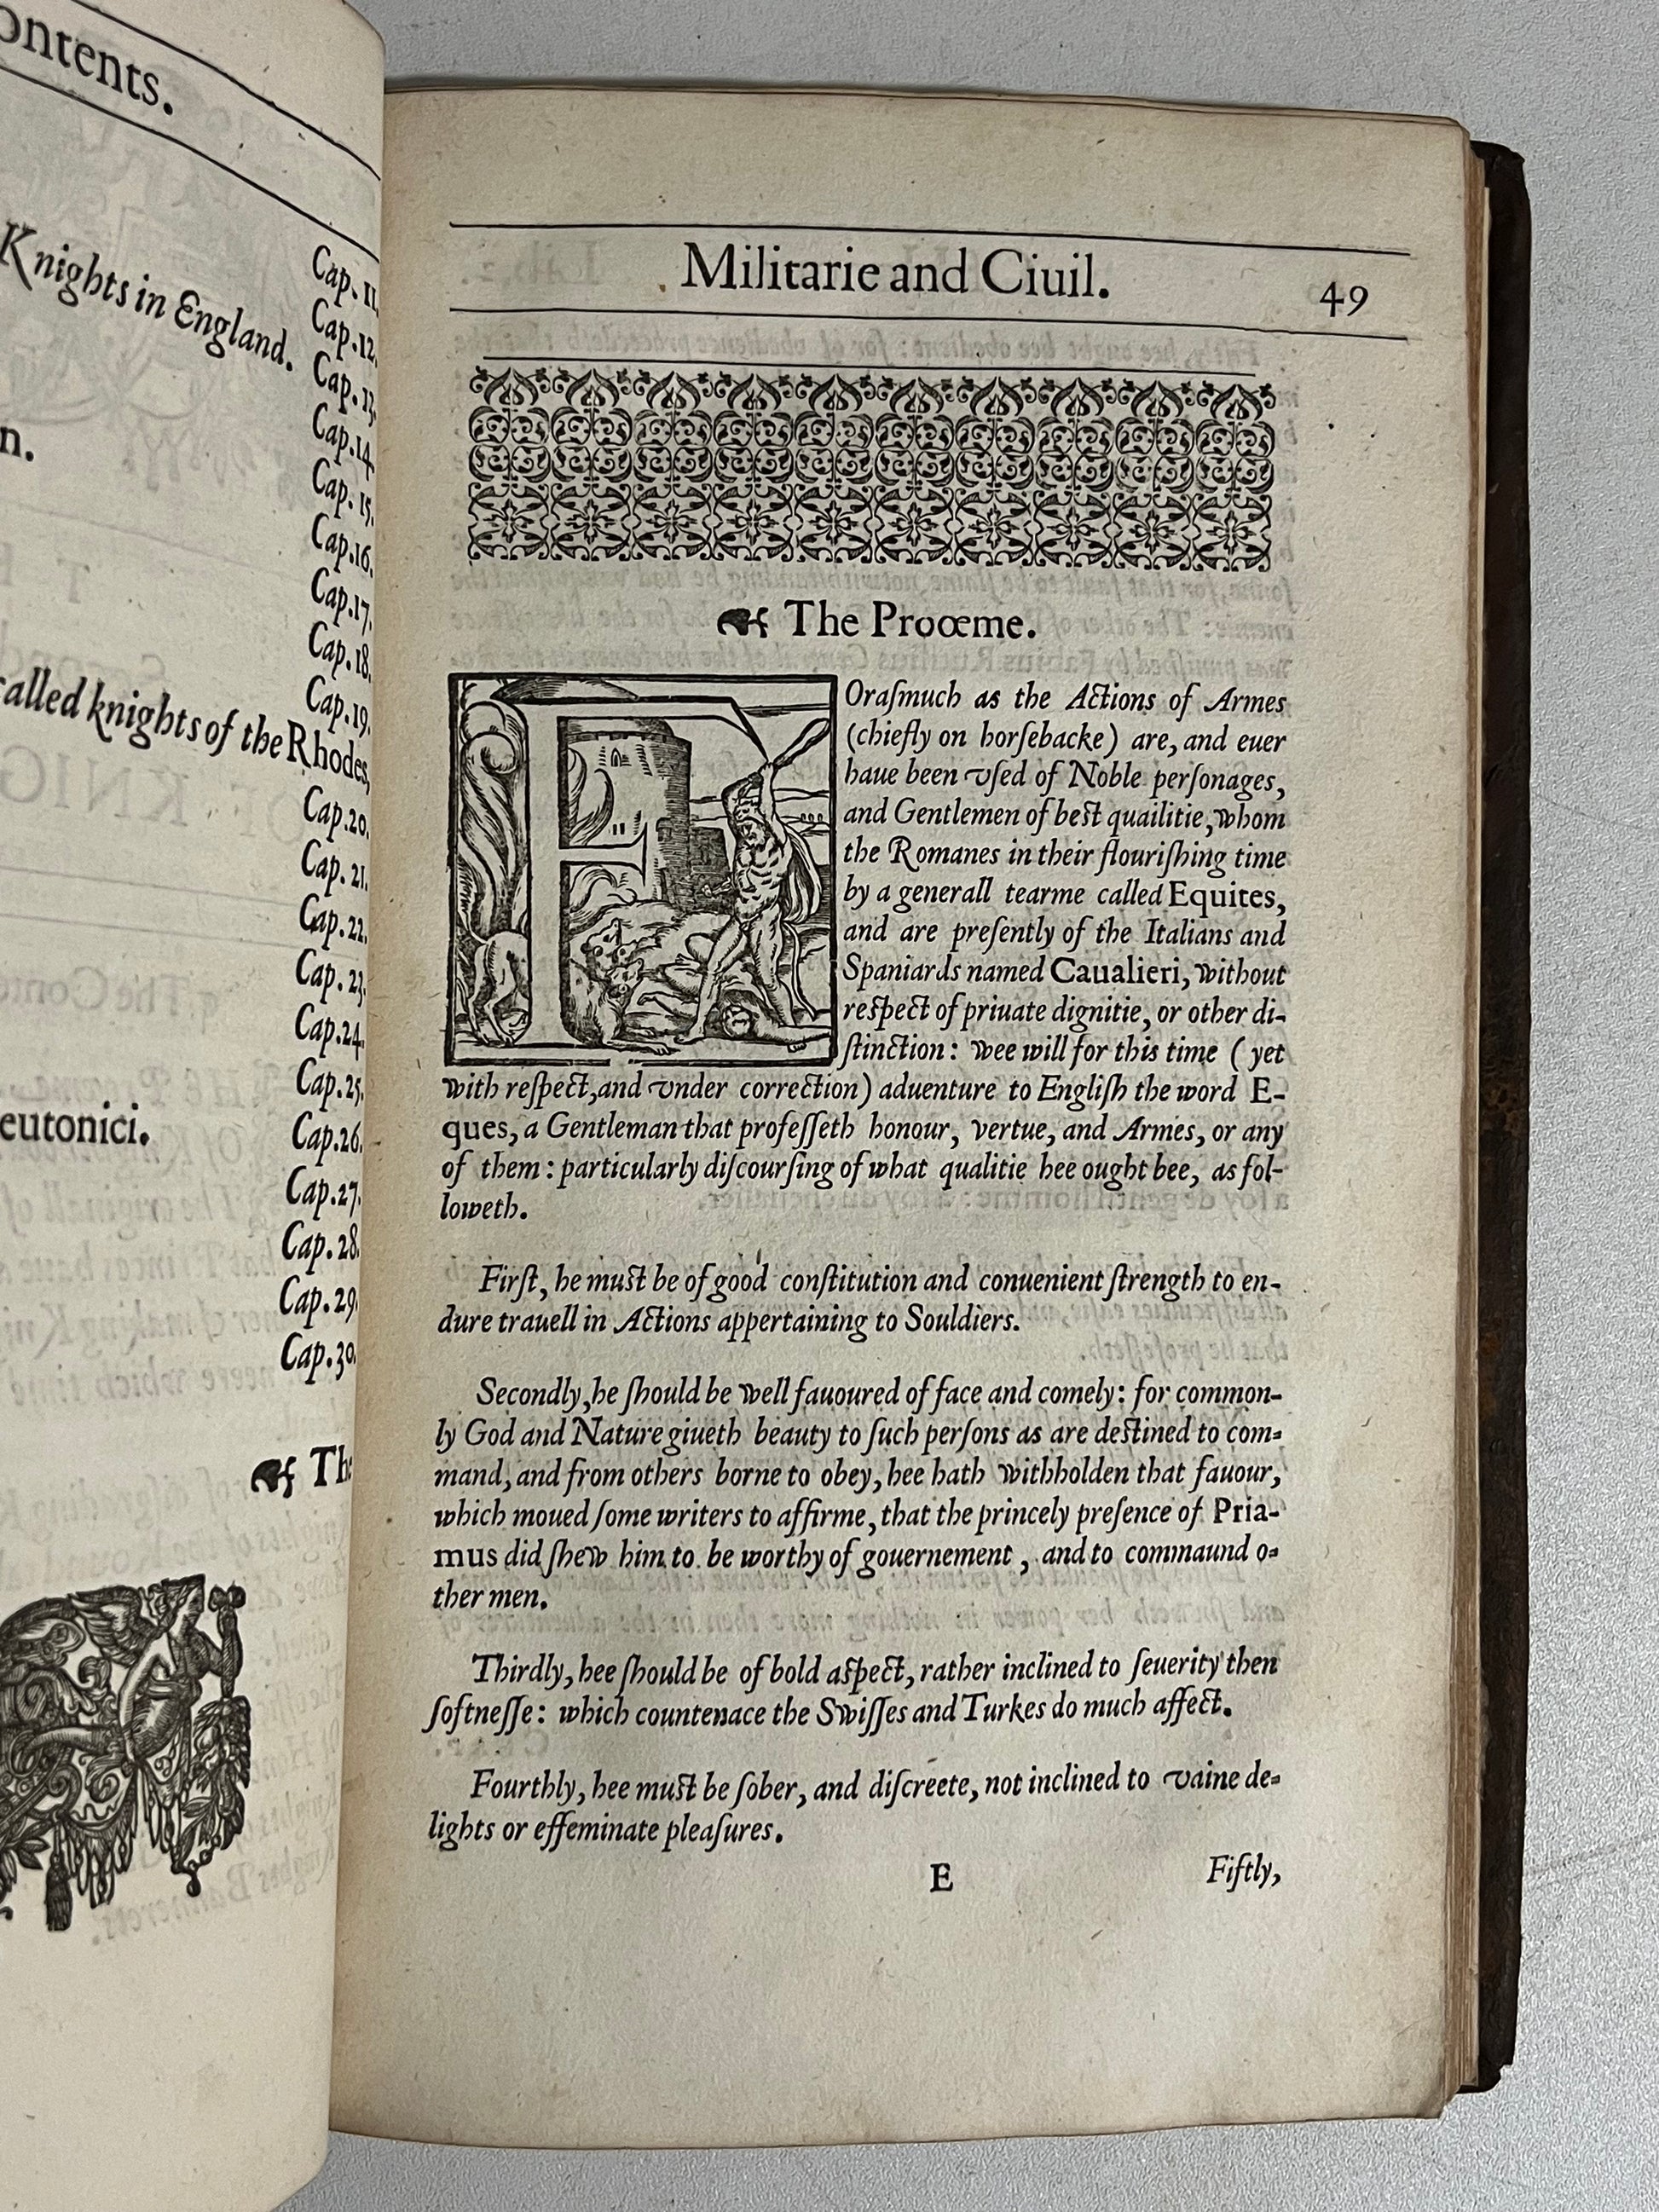 ontents.
Knights in England.
n.
called knights of the Rhodes,
eutonici.
Cap. 11.
Cap. 12.
Cap. 13.
Cap. 14.
Cap. 15.
Cap. 16.
Cap. 17.
Cap. 18.
Cap. 19.
Cap. 20.
Cap. 21.
Cap. 22.
Cap. 23.
Cap. 24.
Cap. 25.
Cap. 26.
Cap. 27.
Cap. 28.
Cap. 29.
Cap. 30.
The
Militarie and Ciuil. 49
The Proœme.
FOraſmuch as the Actions of Armes
(chiefly on horſebacke) are, and euer
haue been vſed of Noble perſonages,
and Gentlemen of beſt quailitie, whom
the Romanes in their flouriſhing time
by a generall tearme called Equites,
and are preſently of the Italians and
Spaniards named Caualieri, without
reſpect of priuate dignitie, or other di-
ſtinction: wee will for this time (yet
with reſpect, and vnder correction) aduenture to Engliſh the word E-
ques, a Gentleman that profeſſeth honour, vertue, and Armes, or any
of them: particularly diſcourſing of what qualitie hee ought bee, as fol-
loweth.
Firſt, he muſt be of good conſtitution and conuenient ſtrength to en-
dure trauell in Actions appertaining to Souldiers.
Secondly, he ſhould be well fauoured of face and comely: for common-
ly God and Nature giueth beauty to ſuch perſons as are deſtined to com-
mand, and from others borne to obey, hee hath withholden that fauour,
which moued ſome writers to affirme, that the princely preſence of Pria-
mus did ſhew him to be worthy of gouernement, and to commaund o-
ther men.
Thirdly, hee ſhould be of bold aſpect, rather inclined to ſeuerity then
ſoftneſſe: which countenace the Swiſſes and Turkes do much affect.
Fourthly, hee muſt be ſober, and diſcreete, not inclined to vaine de-
lights or effeminate pleaſures.
E Fiftly,